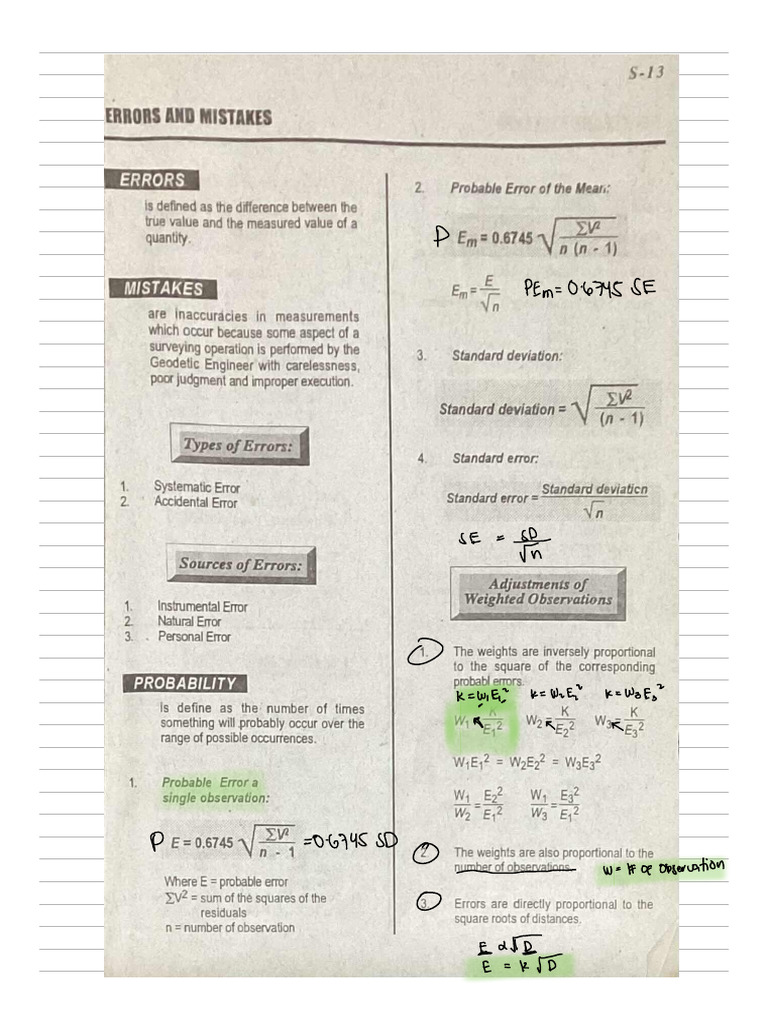 S-13
ERRORS AND MISTAKES
ERRORS
is defined as the difference between the
true value and the measured value of a
quantity.
MISTAKES
are inaccuracies in measurements
which occur because some aspect of a
surveying operation is performed by the
Geodetic Engineer with carelessness,
poor judgment and improper execution.
Types of Errors:
1. Systematic Error
2. Accidental Error
Sources of Errors:
1. Instrumental Error
2. Natural Error
3. Personal Error
PROBABILITY
is define as the number of times
something will probably occur over the
range of possible occurrences.
1. Probable Error a
single observation:
P E = 0.6745 √(ΣV² / (n - 1)) = 0.6745 SD
Where E = probable error
ΣV² = sum of the squares of the
residuals
n = number of observation
2. Probable Error of the Mean:
P Em = 0.6745 √(ΣV² / (n (n - 1)))
Em = E / √n PEm = 0.6745 SE
3. Standard deviation:
Standard deviation = √(ΣV² / (n - 1))
4. Standard error:
Standard error = Standard deviation / √n
SE = SD / √n
Adjustments of
Weighted Observations
1. The weights are inversely proportional
to the square of the corresponding
probabl errors.
K = W₁E₁² K = W₂E₂² K = W₃E₃²
W₁ = K / E₁² W₂ = K / E₂² W₃ = K / E₃²
W₁E₁² = W₂E₂² = W₃E₃²
W₁ / W₂ = E₂² / E₁² W₁ / W₃ = E₃² / E₁²
2. The weights are also proportional to the
number of observations.
W = # of observation
3. Errors are directly proportional to the
square roots of distances.
E α √D
E = K √D